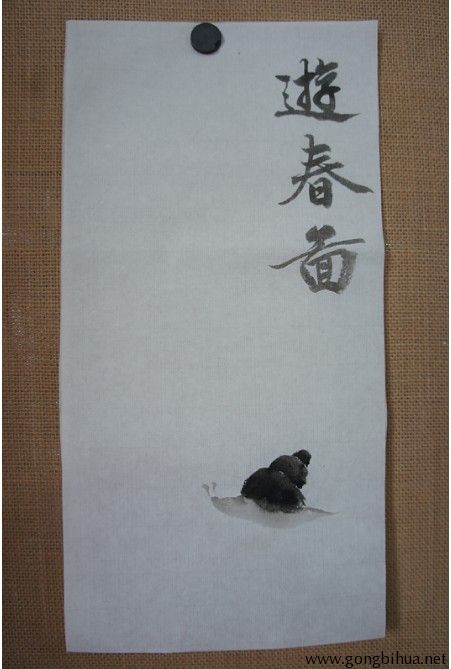 遊春圖
www.gongbihua.net